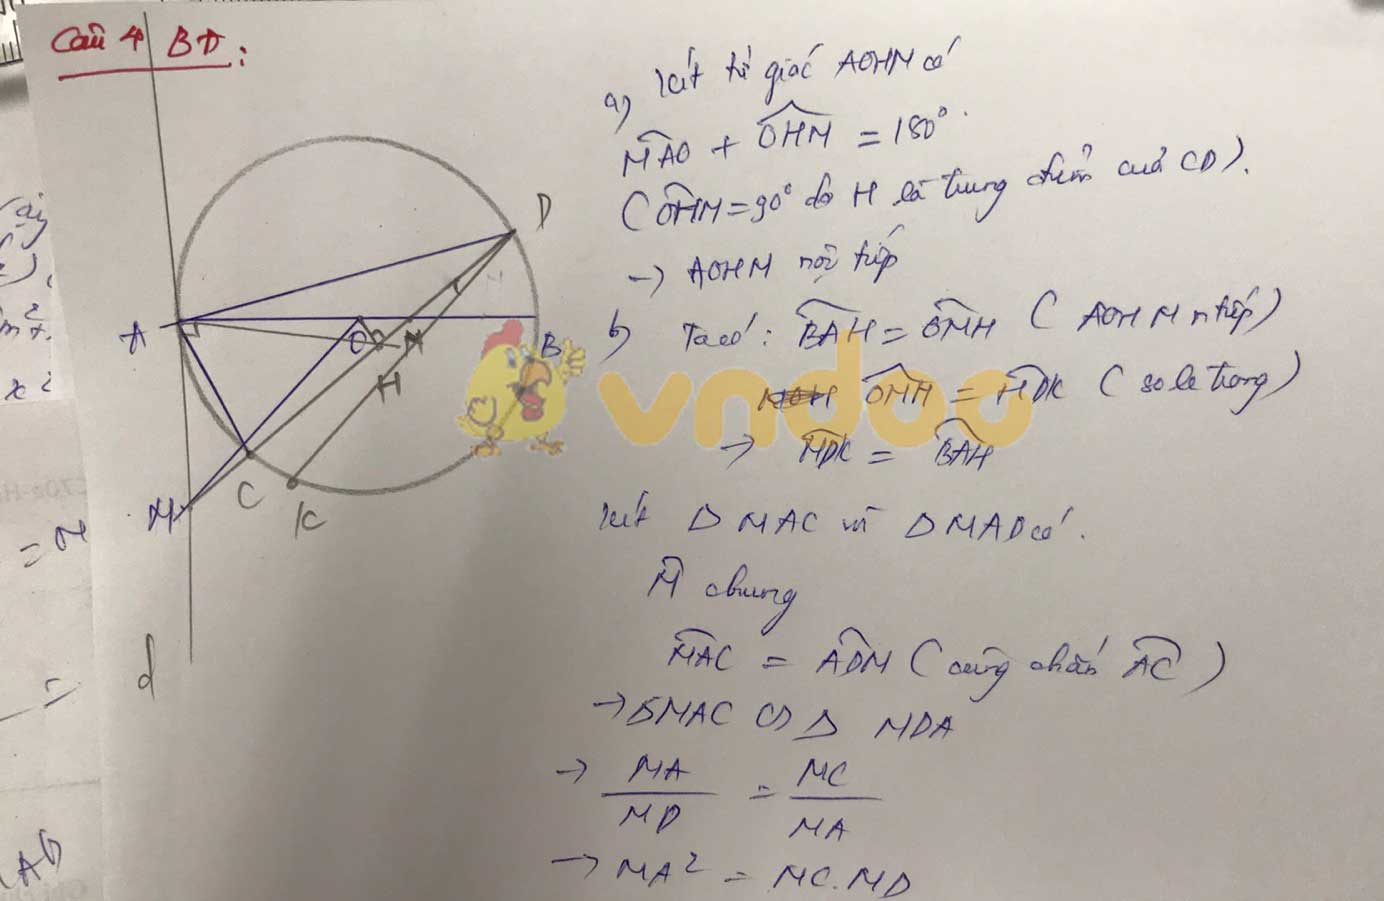 Câu 4 BĐ:
a) Xét tứ giác AOHM có
MAO + OHM = 180°
(OHM = 90° do H là trung điểm của CD).
→ AOHM nội tiếp
b) Ta có: BAH = OMH ( AOHM ntiếp)
OMH = HDK ( so le trong)
→ HDK = BAH
Xét Δ MAC và Δ MAD có.
M chung
MAC = ADM ( cùng chắn AC )
→ Δ MAC ∽ Δ MDA
→ MA/MD = MC/MA
→ MA² = MC.MD
D
A
O
M
B
H
C
K
M
d
vndoo
= M
=